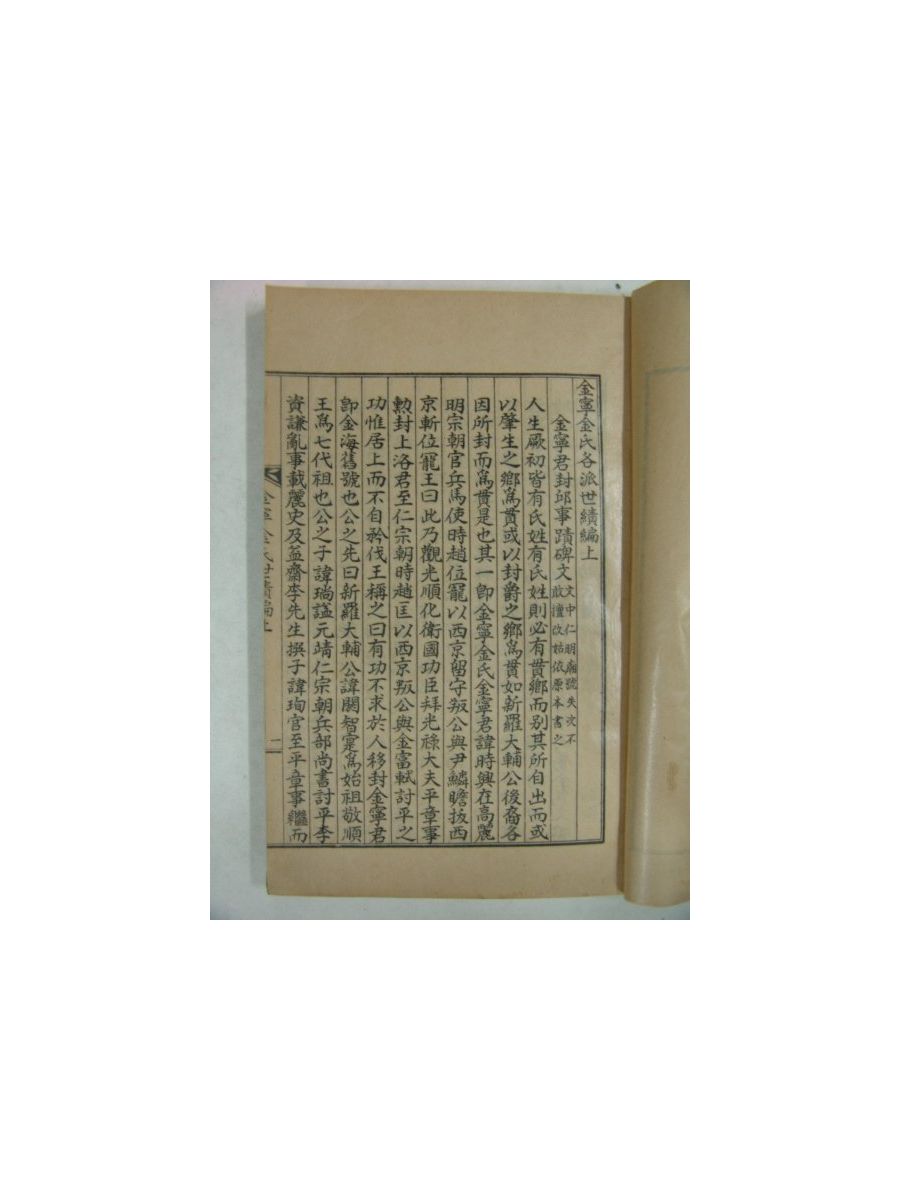 金寧金氏各派世績編上
金寧君封邱事蹟碑文 文中仁明廟號失次不
敢擅改姑依原本書之
人生厥初皆有氏姓有氏姓則必有貫鄉而別其所自出而或
以肇生之鄉爲貫或以封爵之鄉爲貫如新羅大輔公後裔各
因所封而爲貫是也其一卽金寧金氏金寧君諱時興在高麗
明宗朝官兵馬使時趙位寵以西京留守叛公與尹鱗瞻拔西
京斬位寵王曰此乃觀光順化衛國功臣拜光祿大夫平章事
勲封上洛君至仁宗朝時趙匡以西京叛公與金富軾討平之
功惟居上而不自矜伐王稱之曰有功不求於人移封金寧君
卽金海舊號也公之先曰新羅大輔公諱閼智寔爲始祖敬順
王爲七代祖也公之子諱瑞諡元靖仁宗朝兵部尚書討平李
資謙亂事載麗史及益齋李先生撰子諱珣官至平章事繼而
金寧金氏世績編上
一